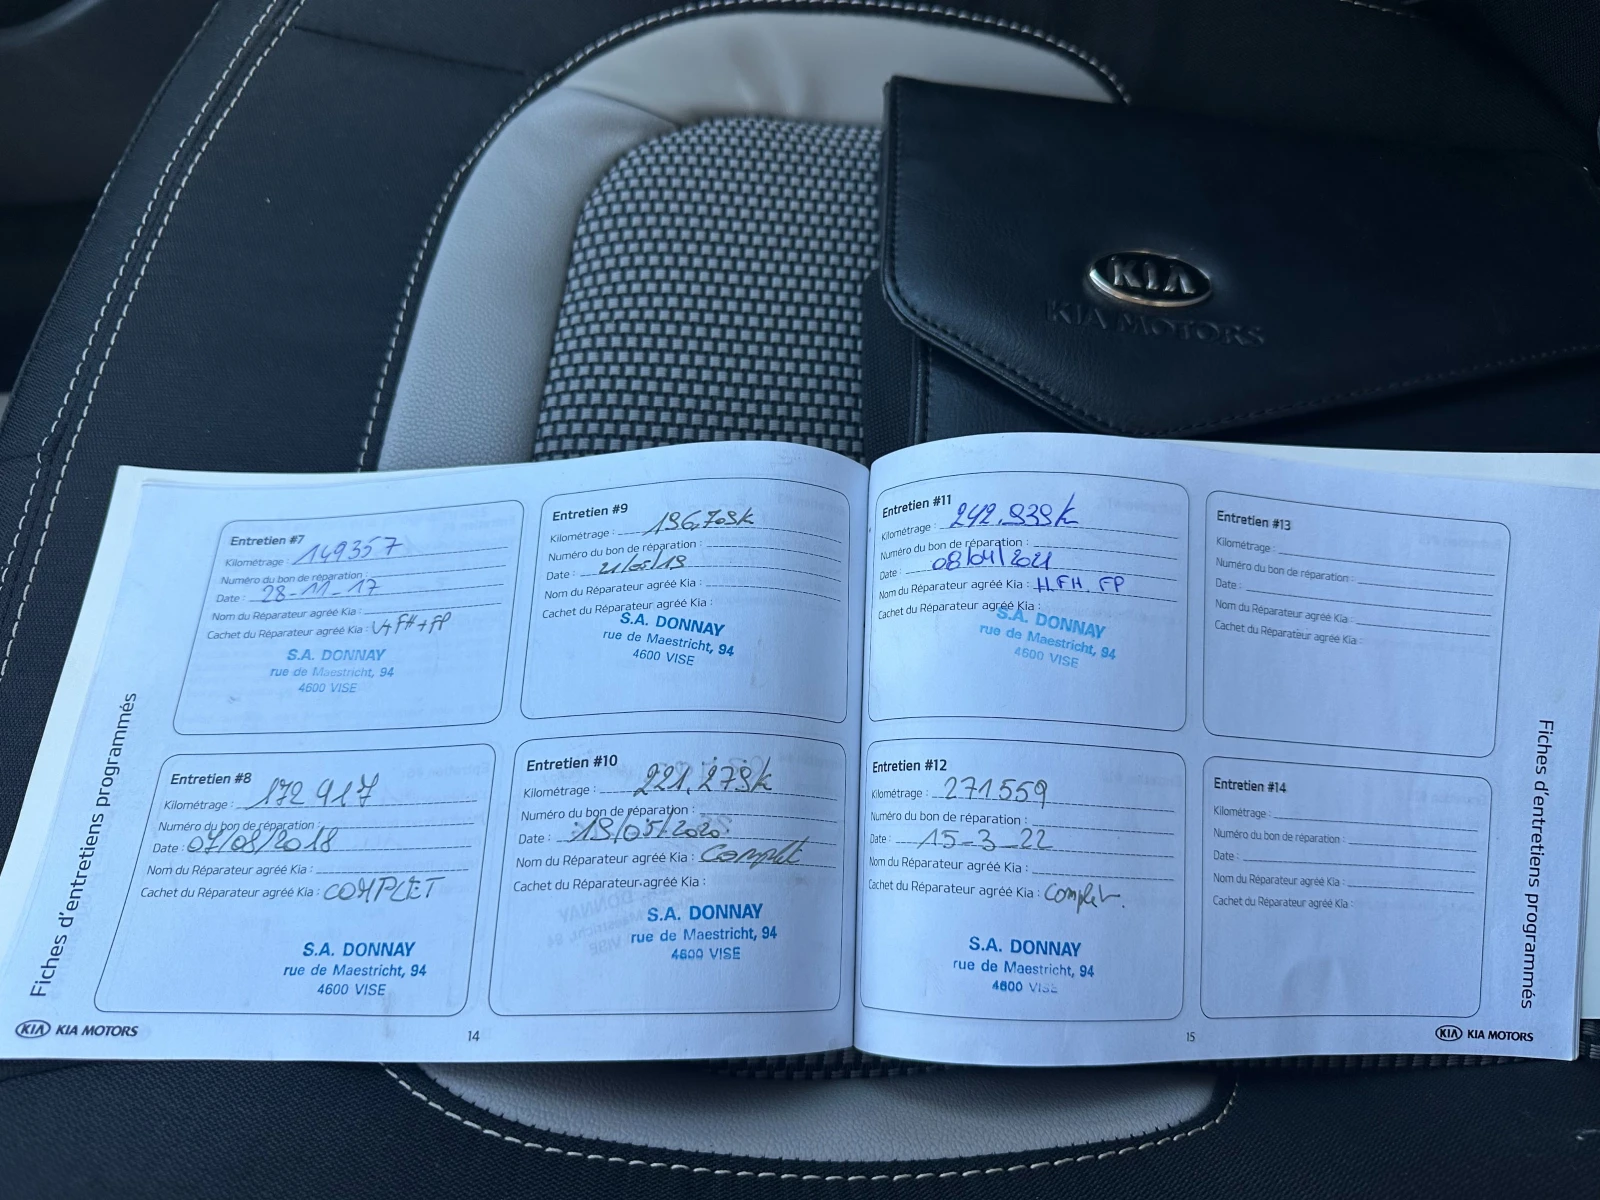 KIA
KIA MOTORS
Fiches d'entretiens programmés
Entretien #7
Kilométrage : 149357
Numéro du bon de réparation :
Date : 28-11-17
Nom du Réparateur agréé Kia :
Cachet du Réparateur agréé Kia : V+FH+FP
S.A. DONNAY
rue de Maestricht, 94
4600 VISE
Entretien #8
Kilométrage : 172 917
Numéro du bon de réparation :
Date : 07/08/2018
Nom du Réparateur agréé Kia :
Cachet du Réparateur agréé Kia : COMPLET
S.A. DONNAY
rue de Maestricht, 94
4600 VISE
Entretien #9
Kilométrage : 196,709k
Numéro du bon de réparation :
Date : 21/05/19
Nom du Réparateur agréé Kia :
Cachet du Réparateur agréé Kia :
S.A. DONNAY
rue de Maestricht, 94
4600 VISE
Entretien #10
Kilométrage : 221,279k
Numéro du bon de réparation :
Date : 19/05/2020
Nom du Réparateur agréé Kia : Complet
Cachet du Réparateur agréé Kia :
S.A. DONNAY
rue de Maestricht, 94
4600 VISE
KIA KIA MOTORS
14
Entretien #11
Kilométrage : 242.939k
Numéro du bon de réparation :
Date : 08/04/2021
Nom du Réparateur agréé Kia : H.FH.FP
Cachet du Réparateur agréé Kia :
S.A. DONNAY
rue de Maestricht, 94
4600 VISE
Entretien #12
Kilométrage : 271559
Numéro du bon de réparation :
Date : 15-3-22
Nom du Réparateur agréé Kia :
Cachet du Réparateur agréé Kia : Complet.
S.A. DONNAY
rue de Maestricht, 94
4600 VISE
Entretien #13
Kilométrage :
Numéro du bon de réparation :
Date :
Nom du Réparateur agréé Kia :
Cachet du Réparateur agréé Kia :
Entretien #14
Kilométrage :
Numéro du bon de réparation :
Date :
Nom du Réparateur agréé Kia :
Cachet du Réparateur agréé Kia :
Fiches d'entretiens programmés
15
KIA KIA MOTORS